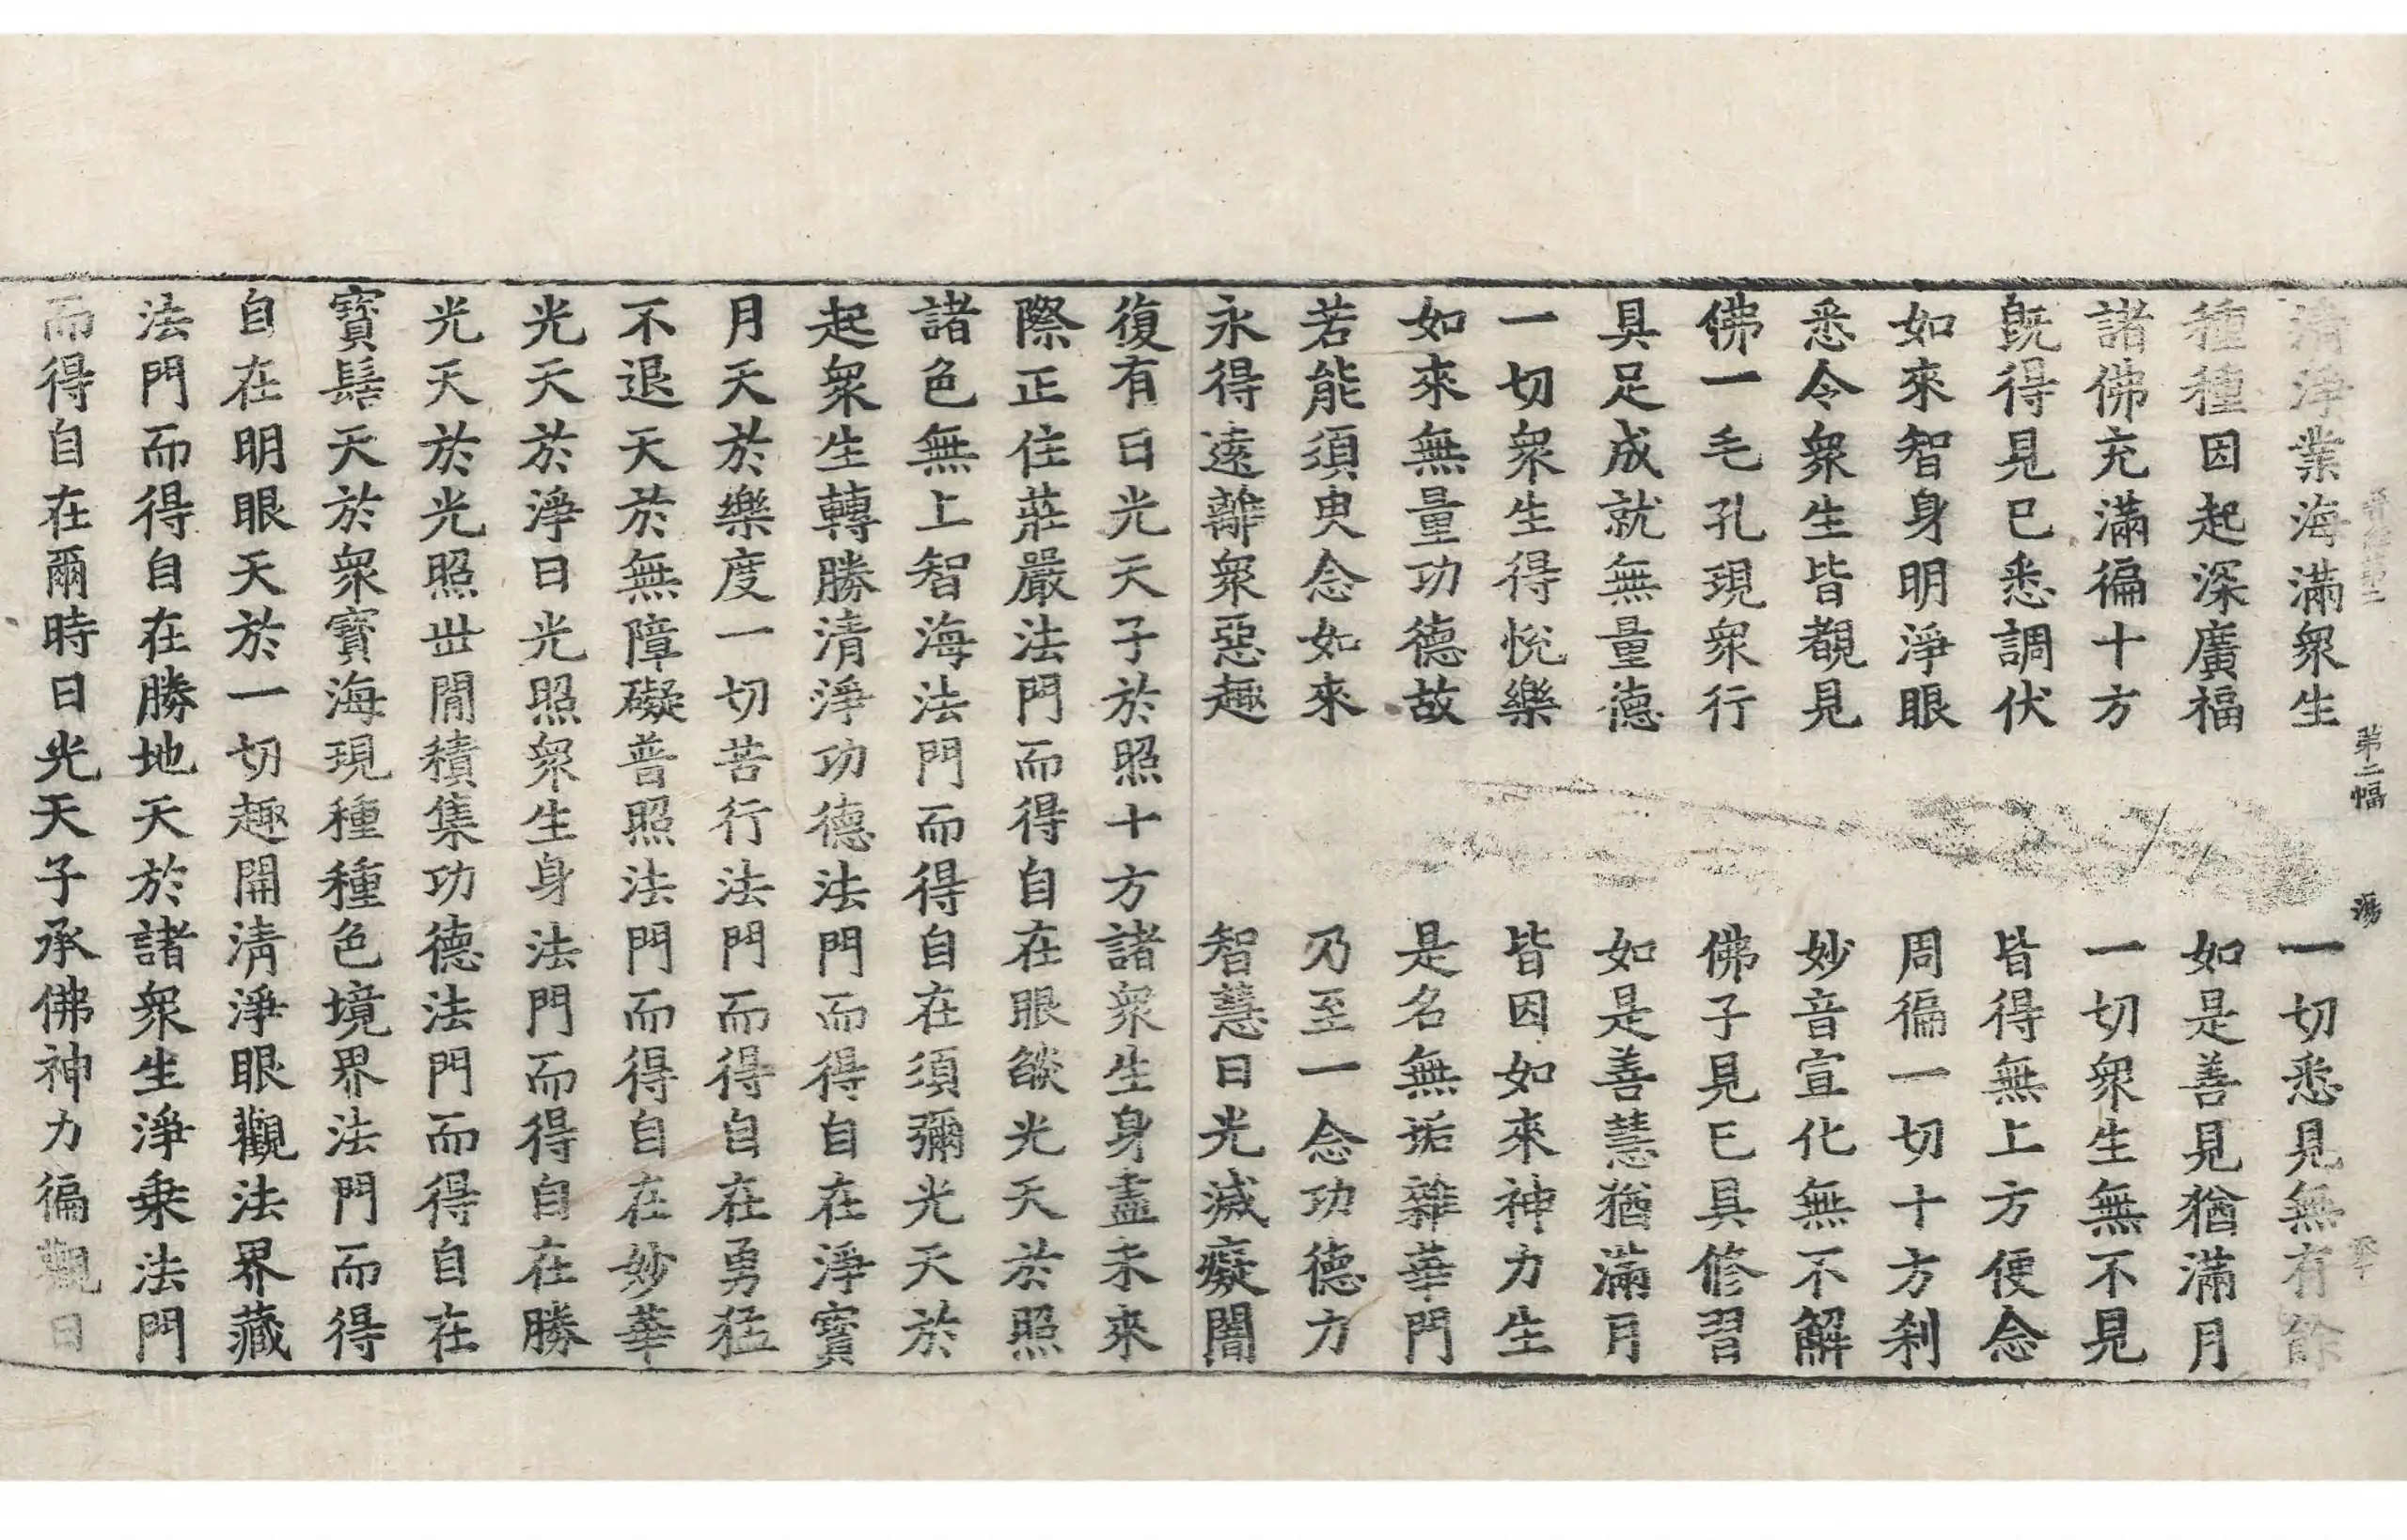 清淨業海滿眾生　一切悉見無有餘
種種因起深廣福　如是善見猶滿月
諸佛充滿徧十方　一切眾生無不見
旣得見已悉調伏　皆得無上方便念
如來智身明淨眼　周徧一切十方刹
悉令眾生皆覩見　妙音宣化無不解
佛一毛孔現眾行　佛子見已具修習
具足成就無量德　如是善慧猶滿月
一切眾生得悅樂　皆因如來神力生
如來無量功德故　是名無垢雜華門
若能須臾念如來　乃至一念功德力
永得遠離眾惡趣　智慧日光滅癡闇
復有日光天子於照十方諸眾生身盡未來
際正住莊嚴法門而得自在眼燄光天於照
諸色無上智海法門而得自在須彌光天於
起眾生轉勝清淨功德法門而得自在淨寶
月天於樂度一切苦行法門而得自在勇猛
不退天於無障礙普照法門而得自在妙華
光天於淨日光照眾生身法門而得自在勝
光天於光照世閒積集功德法門而得自在
寶髻天於眾寶海現種種色境界法門而得
自在明眼天於一切趣開清淨眼觀法界藏
法門而得自在勝地天於諸眾生淨乗法門
而得自在爾時日光天子承佛神力徧觀日
第二幅　湯